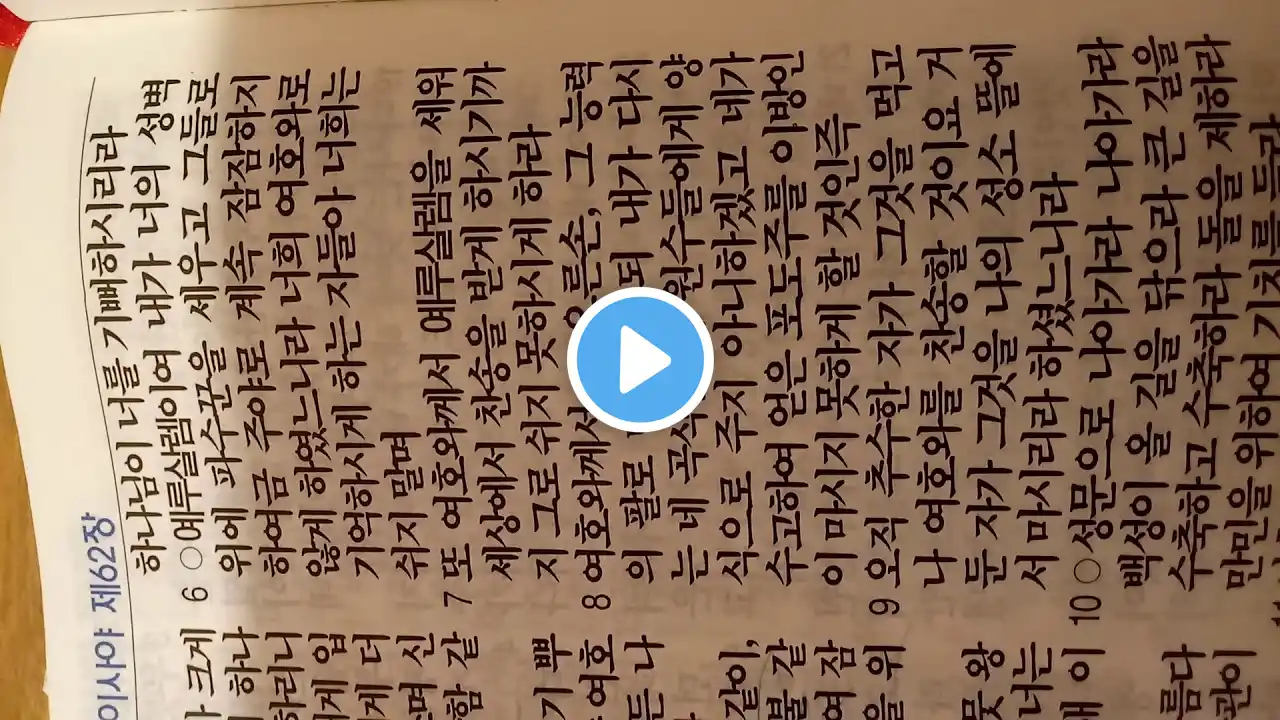 이사야 제62장
크게
하나
하리니
게 입
게 더
며 신
함 같
기 뻐
여호
든 나
같이,
불 같
여 잠
을 위
못 왕
너는
새 이
름다
관이
하나님이 너를 기뻐하시리라
6 ○예루살렘이여 내가 너의 성벽
위에 파수꾼을 세우고 그들로
하여금 주야로 계속 잠잠하지
않게 하였느니라 너희 여호와로
기억하시게 하는 자들아 너희는
쉬지 말며
7 또 여호와께서 예루살렘을 세워
세상에서 찬송을 받게 하시기까
지 그로 쉬지 못하시게 하라
8 여호와께서 오른손, 그 능력
의 팔로 되 내가 다시
는 네 곡식 원수들에게 양
식으로 주지 아니하겠고 네가
수고하여 얻은 포도주를 이방인
이 마시지 못하게 할 것인즉
9 오직 추수한 자가 그것을 먹고
나 여호와를 찬송할 것이요 거
둔 자가 그것을 나의 성소 뜰에
서 마시리라 하셨느니라
10 ○성문으로 나아가라 나아가라
백성이 올 길을 닦으라 큰 길을
수축하고 수축하라 돌을 제하라
만민을 위하여 기치를 들라